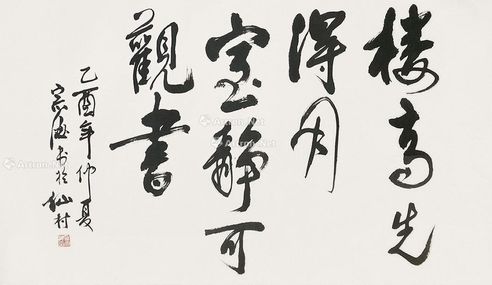 楼高先
得月
室静可
觀書
乙酉年仲夏
宗海书於仙村